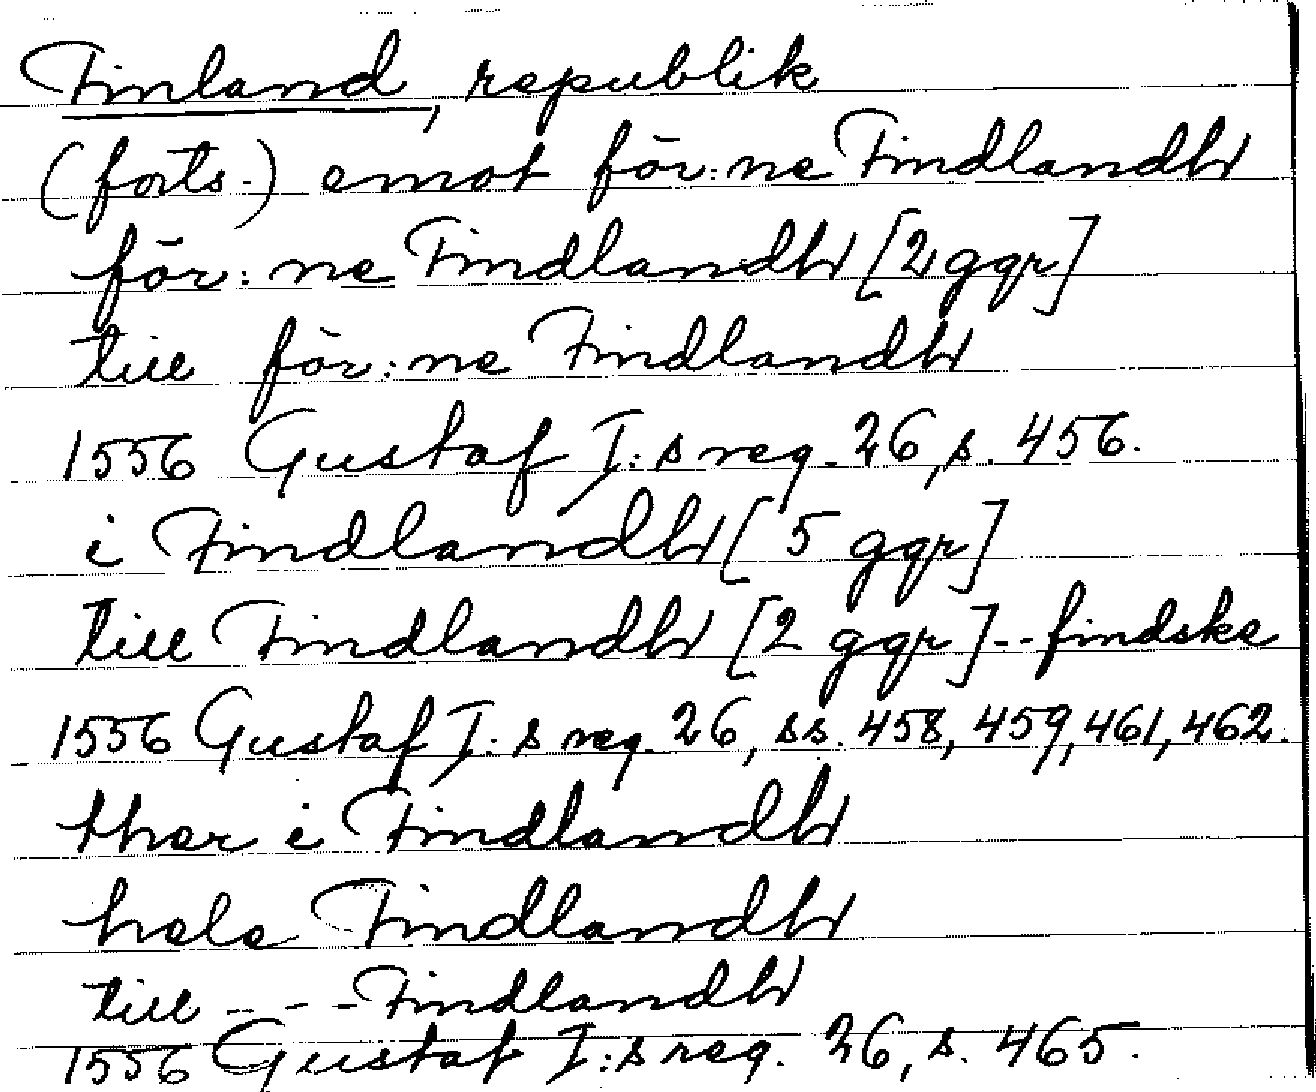 Finland, republik
(forts.) emot för:ne Findlandh
för:ne Findlandh [2 ggr]
till för:ne Findlandh
1556 Gustaf I:s reg. 26, s. 456.
i Findlandh [5 ggr]
till Findlandh [2 ggr] -- findske
1556 Gustaf I:s reg. 26, ss. 458, 459, 461, 462.
ther i Findlandh
hele Findlandh
till - - - Findlandh
1556 Gustaf I:s reg. 26, s. 465.